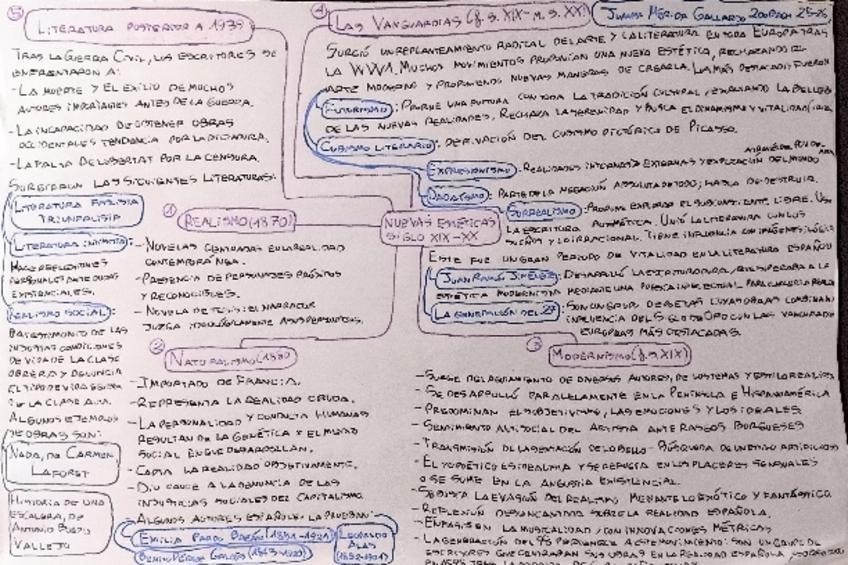 ⑤ LITERATURA POSTERIOR A 1939
TRAS LA GUERRA CIVIL, LOS ESCRITORES SE
ENFRENTARON A:
- LA MUERTE Y EL EXILIO DE MUCHOS
AUTORES IMPORTANTES ANTES DE LA GUERRA.
- LA INCAPACIDAD DE OBTENER OBRAS
OCCIDENTALES TENDENCIA POR LA DICTADURA.
- LA FALTA DE LIBERTAD POR LA CENSURA.
SURGIERON LAS SIGUIENTES LITERATURAS:
LITERATURA FASCISTA
TRIUNFALISTA
LITERATURA
HACE REFLEXIONES
PERSONALES
EXISTENCIALES.
REALISMO SOCIAL:
DA TESTIMONIO DE LAS
INJUSTAS CONDICIONES
DE VIDA DE LA CLASE
OBRERA Y DENUNCIA
EL TIPO DE VIDA
DE LA CLASE
ALGUNOS EJEMPLOS
DE OBRAS SON:
NADA, DE CARMEN
LAFORET
HISTORIA DE UNA
ESCALERA, DE
ANTONIO BUERO
VALLEJO
① REALISMO (1870)
- NOVELAS CENTRADAS EN LA REALIDAD
CONTEMPORÁNEA.
- PRESENCIA DE PERSONAJES
Y RECONOCIBLES.
- NOVELA DE TESIS: EL NARRADOR
JUZGA IDEOLÓGICAMENTE A SUS PERSONAJES.
② NATURALISMO (1880)
- IMPORTADO DE FRANCIA.
- REPRESENTA LA REALIDAD CRUDA.
- LA PERSONALIDAD Y CONDUCTA HUMANAS
RESULTAN DE LA GENÉTICA Y EL MUNDO
SOCIAL EN QUE DESARROLLAN.
- COPIA LA REALIDAD OBJETIVAMENTE.
- DIO CAUCE A LA DENUNCIA DE LAS
INJUSTICIAS SOCIALES DEL CAPITALISMO
- ALGUNOS AUTORES ESPAÑOLES LA PRUEBAN:
EMILIA PARDO BAZÁN (1851-1921)
BENITO PÉREZ GALDÓS (1843-1920)
LEOPOLDO
ALAS
(1852-1901)
NUEVAS ESTÉTICAS
SIGLO XIX-XX
④ LAS VANGUARDIAS (f. S. XIX - m. S. XX)
JUANMA MÉRIDA GALLARDO 2ºBACH 25-26
SURGIÓ UN REPLANTEAMIENTO RADICAL DEL ARTE Y LA LITERATURA EN TODA EUROPA TRAS
LA WWI. MUCHOS MOVIMIENTOS PROPONÍAN UNA NUEVA ESTÉTICA, RECHAZANDO EL
ARTE MODERNO Y PROPONIENDO NUEVAS MANERAS DE CREARLA. LAS MÁS DESTACADAS FUERON
FUTURISMO: PROPONE UNA RUPTURA CON TODA LA TRADICIÓN CULTURAL, EXALTANDO LA BELLEZA
DE LAS NUEVAS REALIDADES. RECHAZA LA SERENIDAD Y BUSCA EL DINAMISMO Y VITALIDAD
CUBISMO LITERARIO: DERIVACIÓN DEL CUBISMO PICTÓRICO DE PICASSO.
EXPRESIONISMO: REALIDADES INTERNAS Y EXTERNAS Y EXPLICACIÓN DEL MUNDO
DADAÍSMO: PARTE DE LA NEGACIÓN ABSOLUTA DE TODO; HABLA DE DESTRUIR.
SURREALISMO: PROPONE EXPLORAR EL SUBCONSCIENTE, LIBRE. USA
LA ESCRITURA AUTOMÁTICA. UNIÓ LA LITERATURA CON LOS
SUEÑOS Y LO IRRACIONAL. TIENE INFLUENCIA CON IMÁGENES
ESTE FUE UN GRAN PERIODO DE VITALIDAD EN LA LITERATURA ESPAÑOLA
JUAN RAMÓN JIMÉNEZ: DESARROLLÓ
ESTÉTICA MODERNISTA MEDIANTE UNA POESÍA INTELECTUAL
LA GENERACIÓN DEL 27: SON UN GRUPO DE POETAS
INFLUENCIA DEL SIGLO DE ORO CON LAS VANGUARDIAS
EUROPEAS MÁS DESTACADAS.
③ MODERNISMO (f. S. XIX)
- SURGE DEL AGOTAMIENTO DE DIVERSOS AUTORES, DE LOS TEMAS Y ESTILO REALISTAS
- SE DESARROLLÓ PARALELAMENTE EN LA PENÍNSULA E HISPANOAMÉRICA
- PREDOMINAN EL SUBJETIVISMO, LAS EMOCIONES Y LOS IDEALES
- SENTIMIENTO ANTISOCIAL DEL ARTISTA ANTE RASGOS BURGUESES
- TRANSMISIÓN DE LA SENSACIÓN DE LO BELLO - BÚSQUEDA
- EL YO POÉTICO ES IDEALISTA Y SE REFUGIA EN LOS PLACERES SENSUALES
O SE SUME EN LA ANGUSTIA EXISTENCIAL.
- LA EVASIÓN DEL REALISMO MEDIANTE LO EXÓTICO Y FANTÁSTICO
- REFLEXIÓN DESENCANTADA SOBRE LA REALIDAD ESPAÑOLA.
- ÉNFASIS EN LA MUSICALIDAD, CON INNOVACIONES MÉTRICAS
- LA GENERACIÓN DEL 98 PERTENECE A ESTE MOVIMIENTO: SON UN GRUPO DE
ESCRITORES QUE CENTRARON SUS OBRAS EN LA REALIDAD ESPAÑOLA